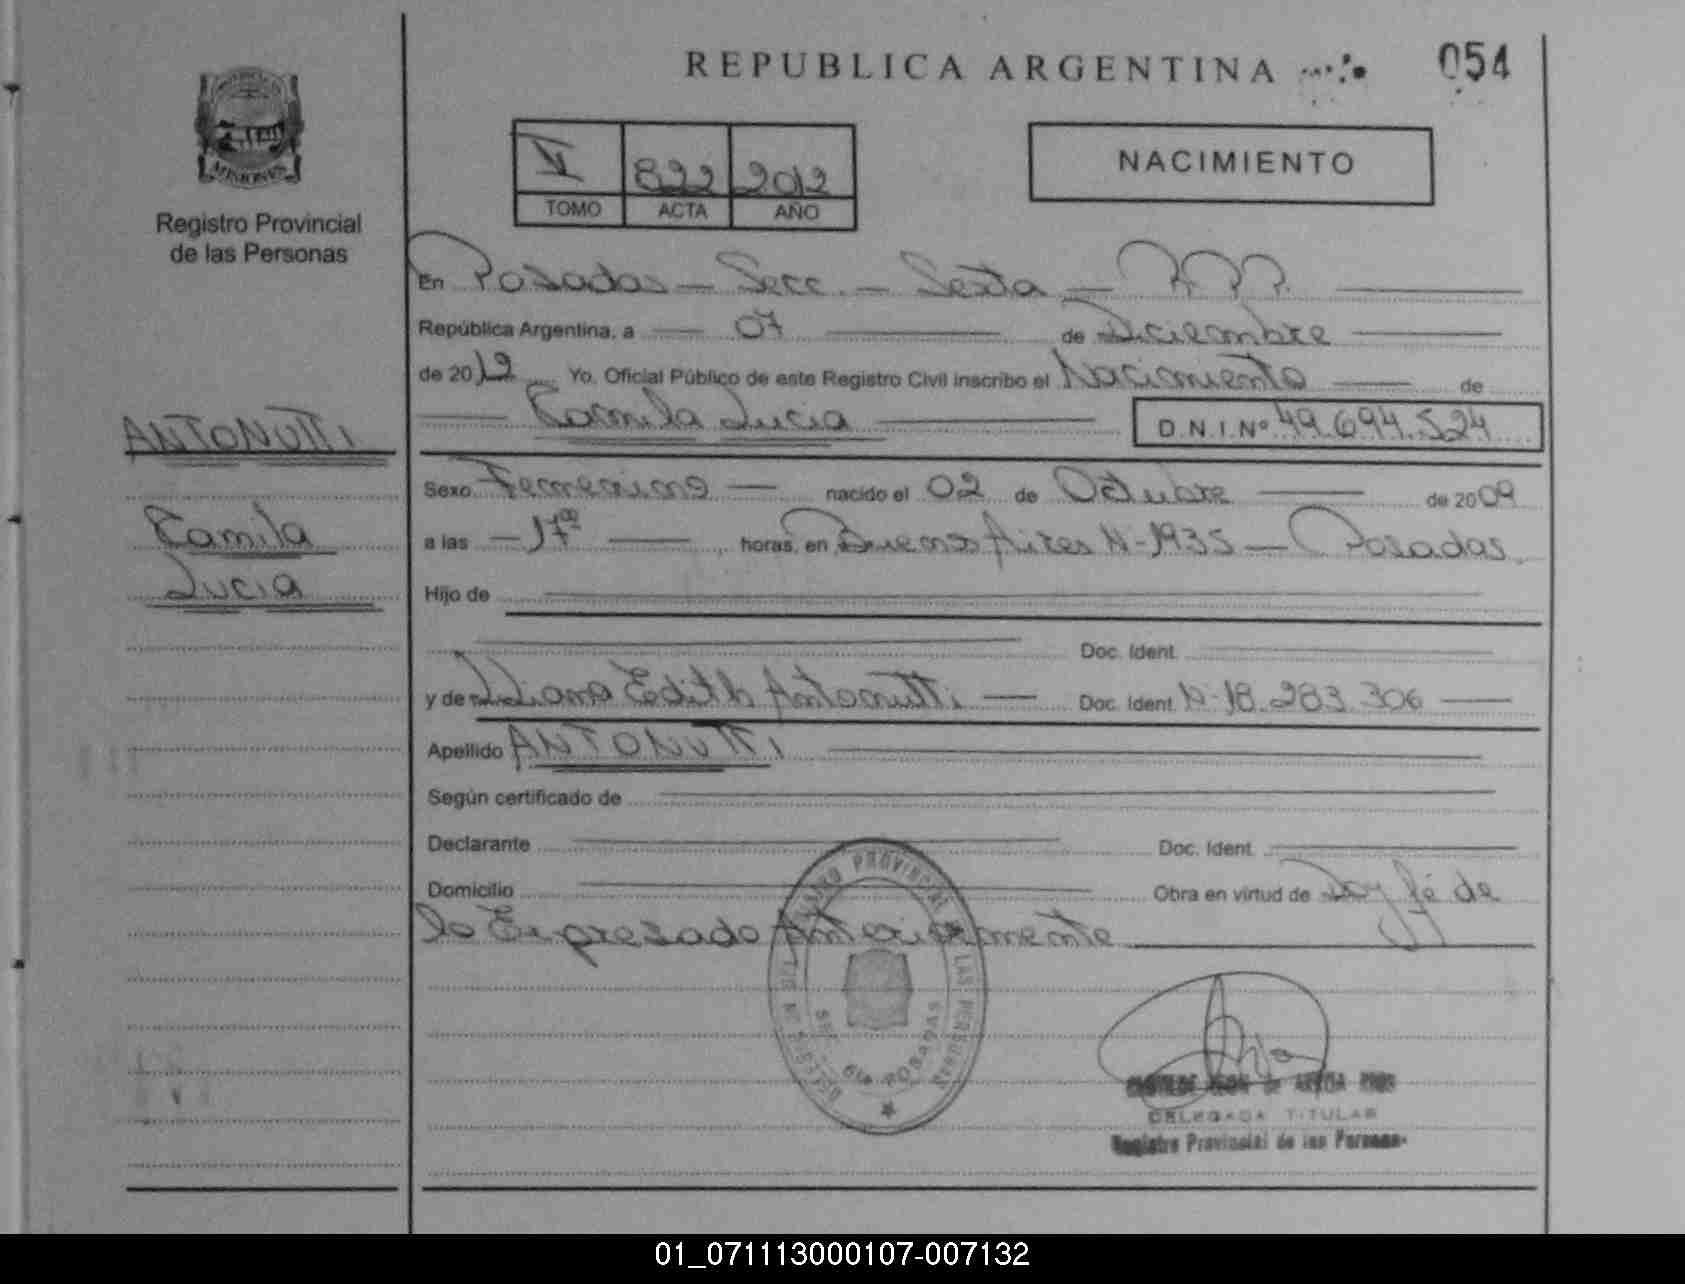 REPUBLICA ARGENTINA
054
MISIONES
Registro Provincial
de las Personas
V 822 2012
TOMO ACTA AÑO
NACIMIENTO
En Posadas - Secc. - Sexta - R.P.P.
República Argentina, a 07 de Diciembre
de 2012 Yo, Oficial Público de este Registro Civil inscribo el Nacimiento de
Kamila Lucia D.N.I.Nº 49.694.524
ANTONUTTI
Kamila
Lucia
Sexo Femenino nacido el 02 de Octubre de 2009
a las 17⁰⁰ horas, en Buenos Aires N-1935 - Posadas
Hijo de
Doc. Ident.
y de Liliana Edith Antonutti Doc. Ident. N-18.283.306
Apellido ANTONUTTI
Según certificado de
Declarante Doc. Ident.
Domicilio Obra en virtud de Doy fé de
lo Expresado Anteriormente
PROVINCIAL DE LAS PERSONAS
SEC. 6ta POSADAS
de
DELEGADA TITULAR
Registro Provincial de las Personas
01_071113000107-007132